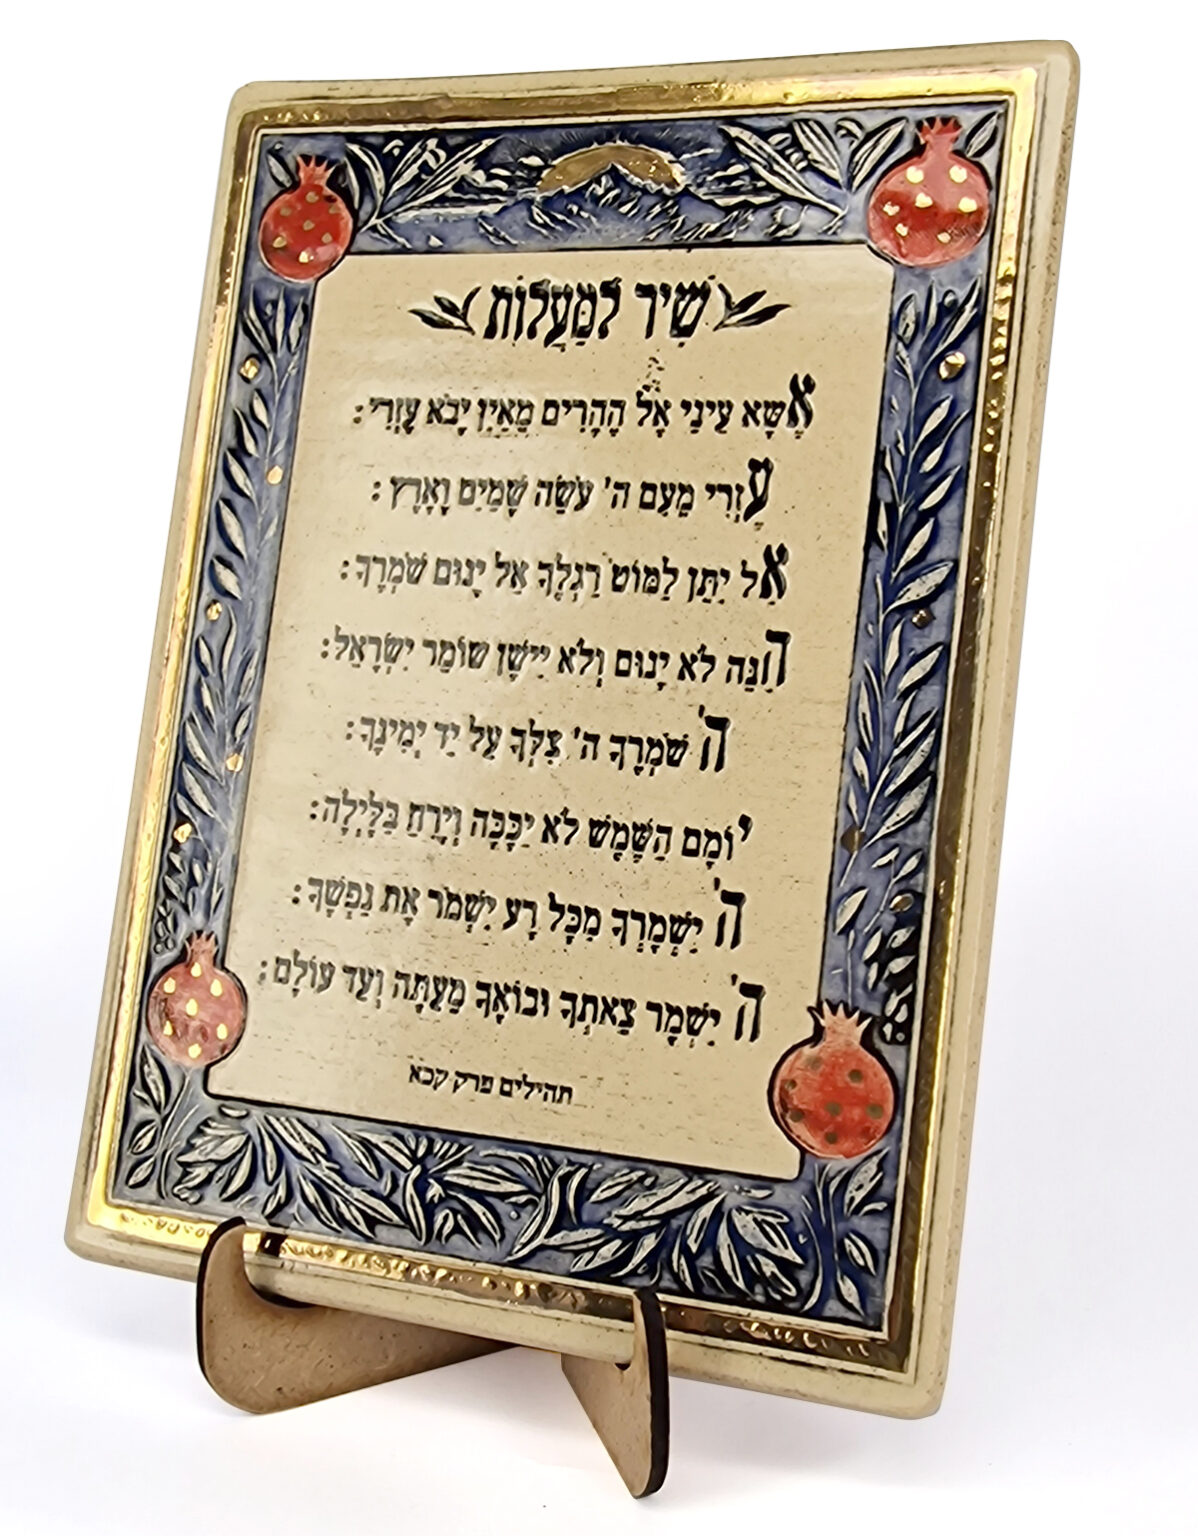 שִׁיר לַמַּעֲלוֹת
אֶשָּׂא עֵינַי אֶל הֶהָרִים מֵאַיִן יָבֹא עֶזְרִי:
עֶזְרִי מֵעִם ה' עֹשֵׂה שָׁמַיִם וָאָרֶץ:
אַל יִתֵּן לַמּוֹט רַגְלֶךָ אַל יָנוּם שֹׁמְרֶךָ:
הִנֵּה לֹא יָנוּם וְלֹא יִישָׁן שׁוֹמֵר יִשְׂרָאֵל:
ה' שֹׁמְרֶךָ ה' צִלְּךָ עַל יַד יְמִינֶךָ:
יוֹמָם הַשֶּׁמֶשׁ לֹא יַכֶּכָּה וְיָרֵחַ בַּלָּיְלָה:
ה' יִשְׁמָרְךָ מִכָּל רָע יִשְׁמֹר אֶת נַפְשֶׁךָ:
ה' יִשְׁמָר צֵאתְךָ וּבוֹאֶךָ מֵעַתָּה וְעַד עוֹלָם:
תהילים פרק קכא